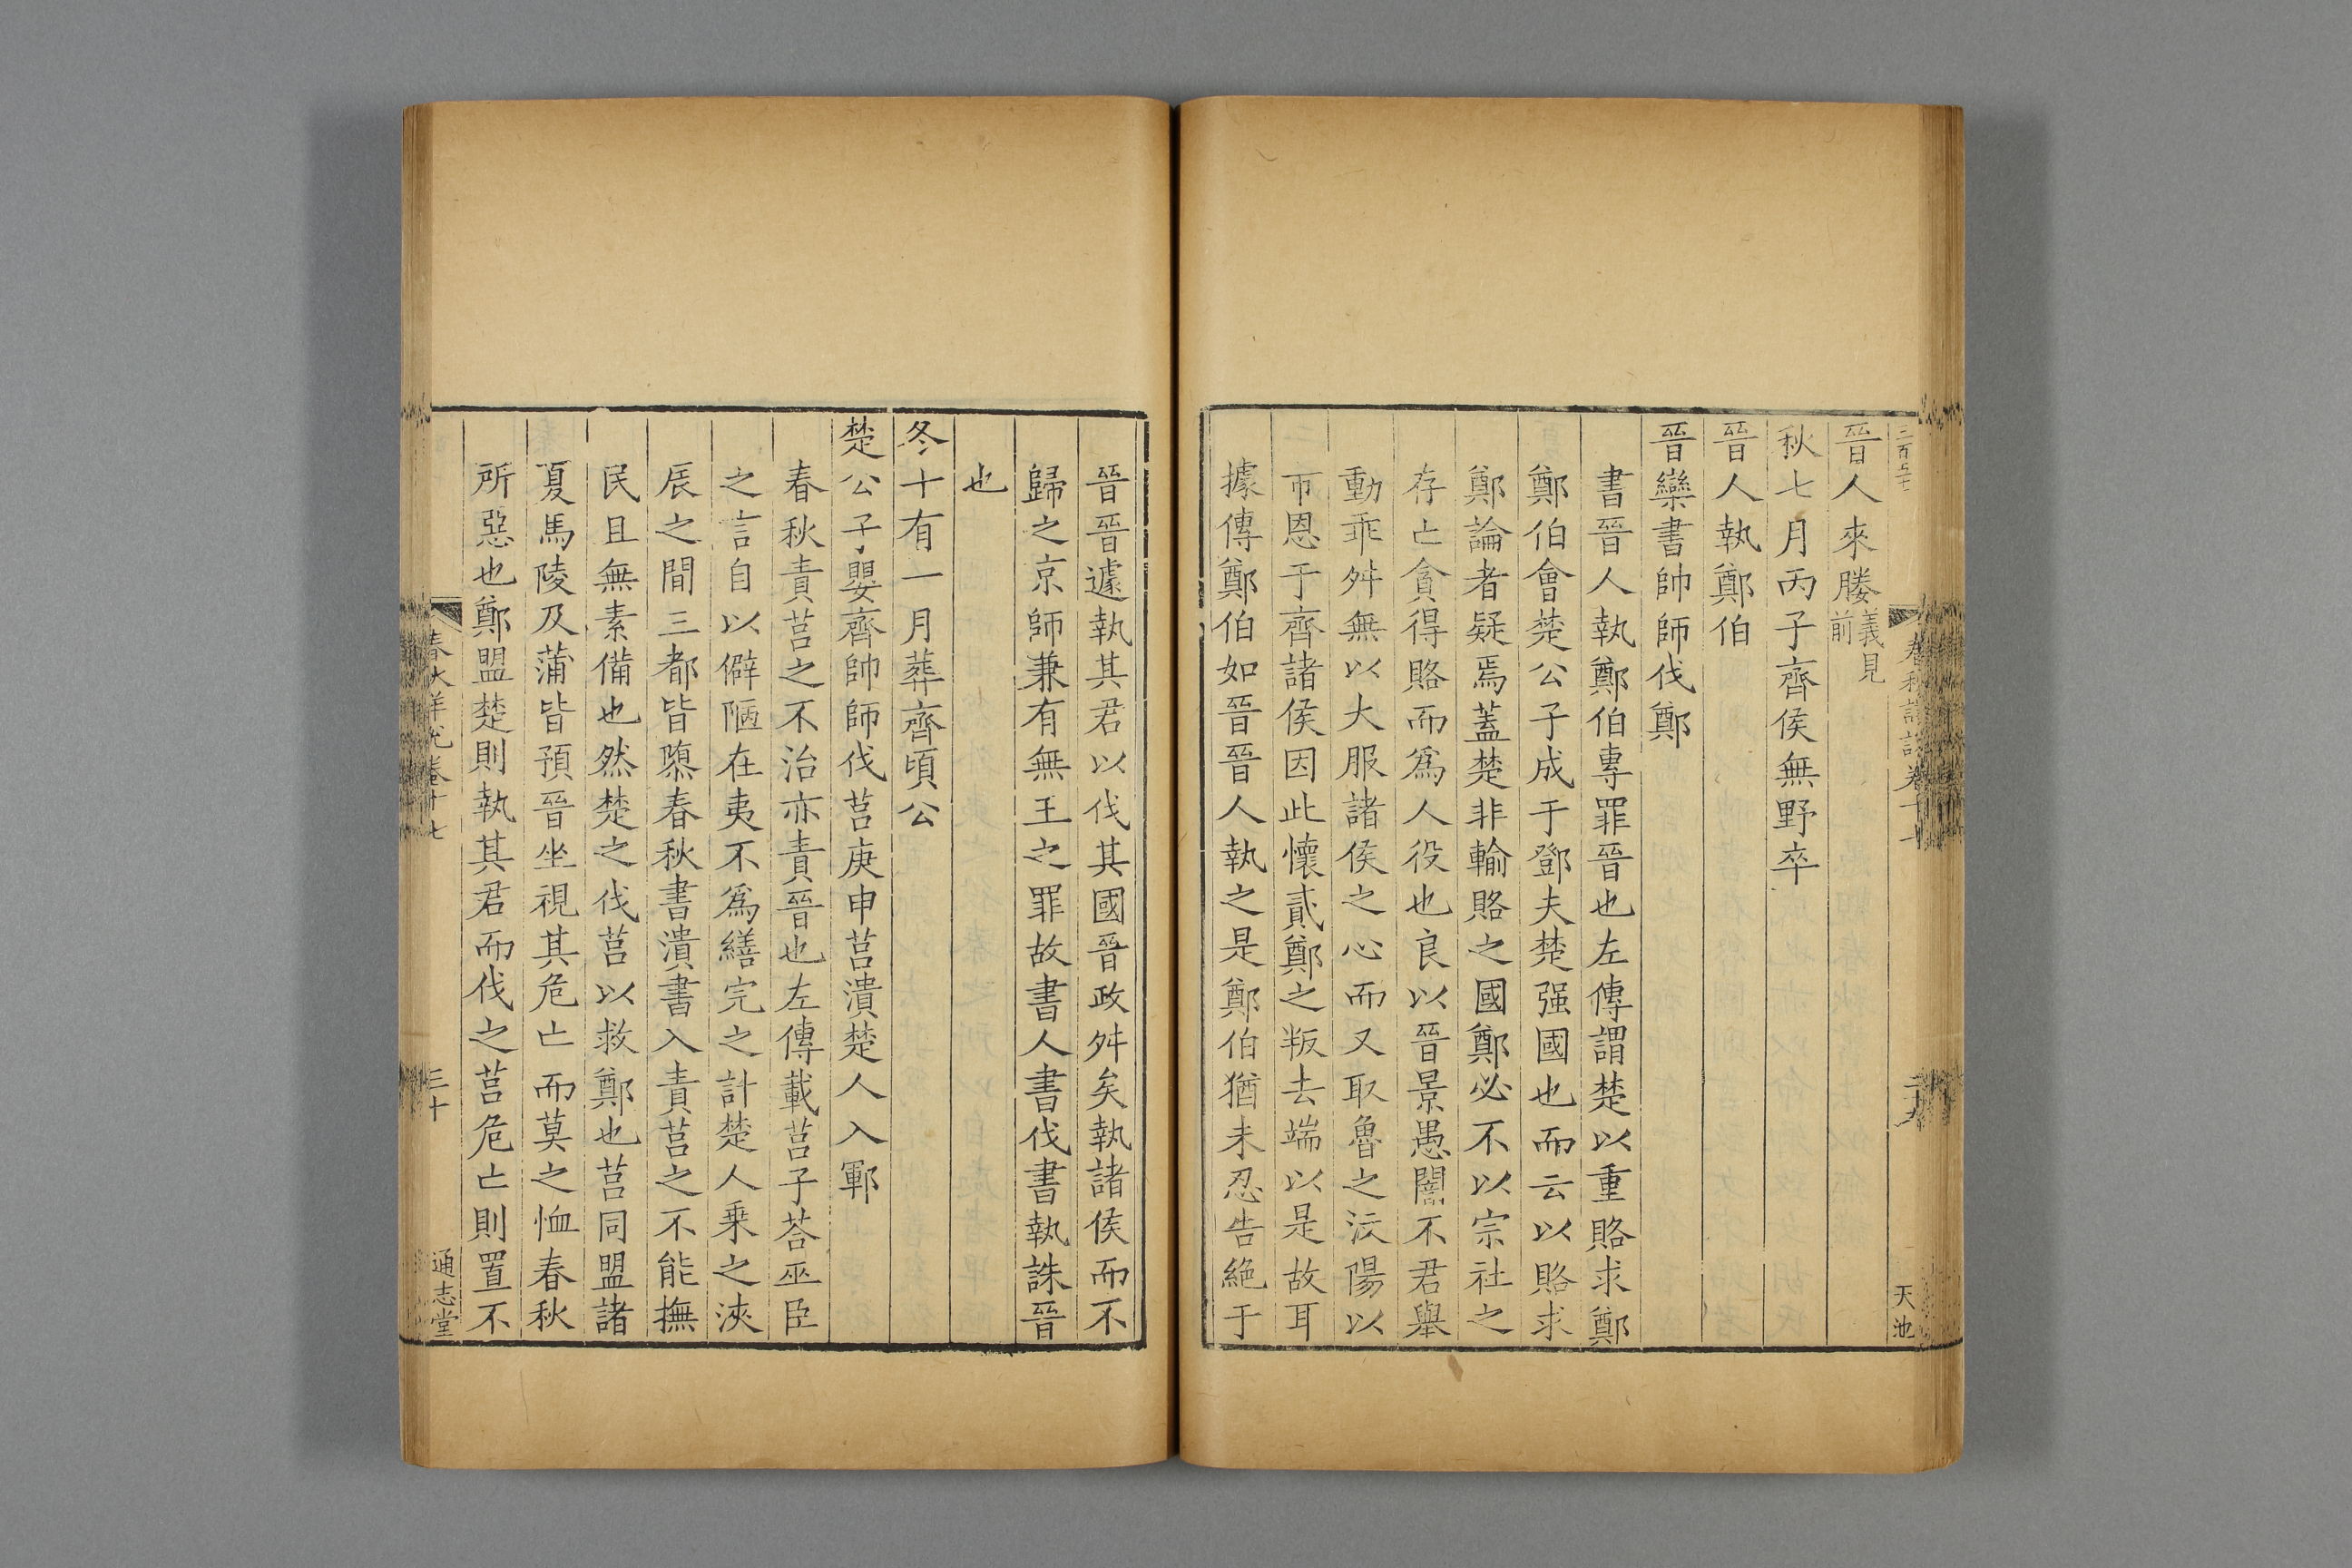 春秋詳說卷十七
天池
晉人來媵義見前
秋七月丙子齊侯無野卒
晉人執鄭伯
晉欒書帥師伐鄭
書晉人執鄭伯專罪晉也左傳謂楚以重賂求鄭
鄭伯會楚公子成于鄧夫楚强國也而云以賂求
鄭論者疑焉蓋楚非輸賂之國鄭必不以宗社之
存亡貪得賂而爲人役也良以晉景愚闇不君舉
動乖舛無以大服諸侯之心而又取魯之汶陽以
市恩于齊諸侯因此懷貳鄭之叛去端以是故耳
據傳鄭伯如晉晉人執之是鄭伯猶未忍告絶于
晉晉遽執其君以伐其國晉政舛矣執諸侯而不
歸之京師兼有無王之罪故書人書伐書執誅晉
也
冬十有一月葬齊頃公
楚公子嬰齊帥師伐莒庚申莒潰楚人入鄆
春秋責莒之不治亦責晉也左傳載莒子荅巫臣
之言自以僻陋在夷不爲繕完之計楚人乗之浹
辰之間三都皆隳春秋書潰書入責莒之不能撫
民且無素備也然楚之伐莒以救鄭也莒同盟諸
夏馬陵及蒲皆預晉坐視其危亡而莫之恤春秋
所惡也鄭盟楚則執其君而伐之莒危亡則置不
春秋詳說卷十七
三十
通志堂